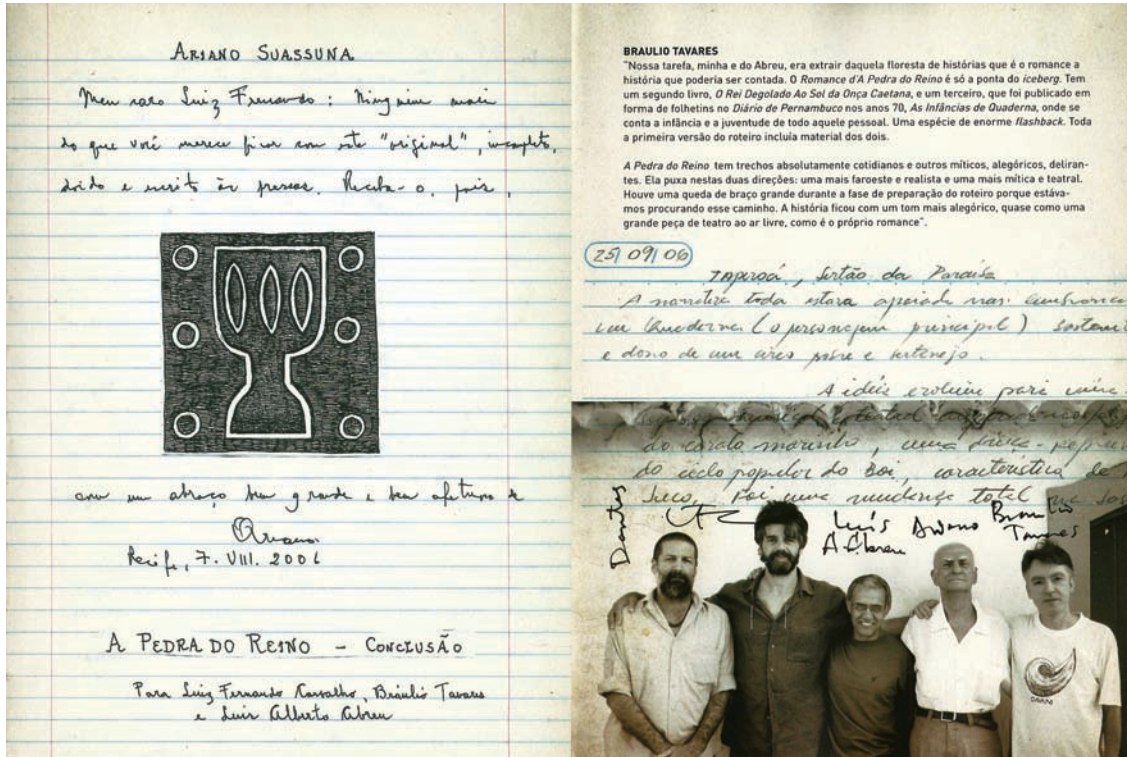 ARIANO SUASSUNA
Meu caro Luiz Fernando: Ninguém mais
do que você merece ficar com este "original", incompleto,
doido e escrito às pressas. Receba-o, pois,
com um abraço bem grande e bem afetuoso de
Ariano
Recife, 7. VIII. 2006
A PEDRA DO REINO – CONCLUSÃO
Para Luiz Fernando Carvalho, Bráulio Tavares
e Luís Alberto Abreu
BRAULIO TAVARES
"Nossa tarefa, minha e do Abreu, era extrair daquela floresta de histórias que é o romance a
história que poderia ser contada. O Romance d'A Pedra do Reino é só a ponta do iceberg. Tem
um segundo livro, O Rei Degolado Ao Sol da Onça Caetana, e um terceiro, que foi publicado em
forma de folhetins no Diário de Pernambuco nos anos 70, As Infâncias de Quaderna, onde se
conta a infância e a juventude de todo aquele pessoal. Uma espécie de enorme flashback. Toda
a primeira versão do roteiro incluía material dos dois.
A Pedra do Reino tem trechos absolutamente cotidianos e outros míticos, alegóricos, deliran-
tes. Ela puxa nestas duas direções: uma mais faroeste e realista e uma mais mítica e teatral.
Houve uma queda de braço grande durante a fase de preparação do roteiro porque estáva-
mos procurando esse caminho. A história ficou com um tom mais alegórico, quase como uma
grande peça de teatro ao ar livre, como é o próprio romance".
25/09/06
Taperoá, Sertão da Paraíba
A narrativa toda estará apoiada nas
um Quaderna (o personagem principal)
e dono de um circo pobre e sertanejo.
A idéia evoluiu para
teatral
do cavalo marinho, uma
do ciclo popular do Boi, característica
Foi uma mudança total
Dantas
Luís
A. Abreu
Ariano
Braulio
Tavares